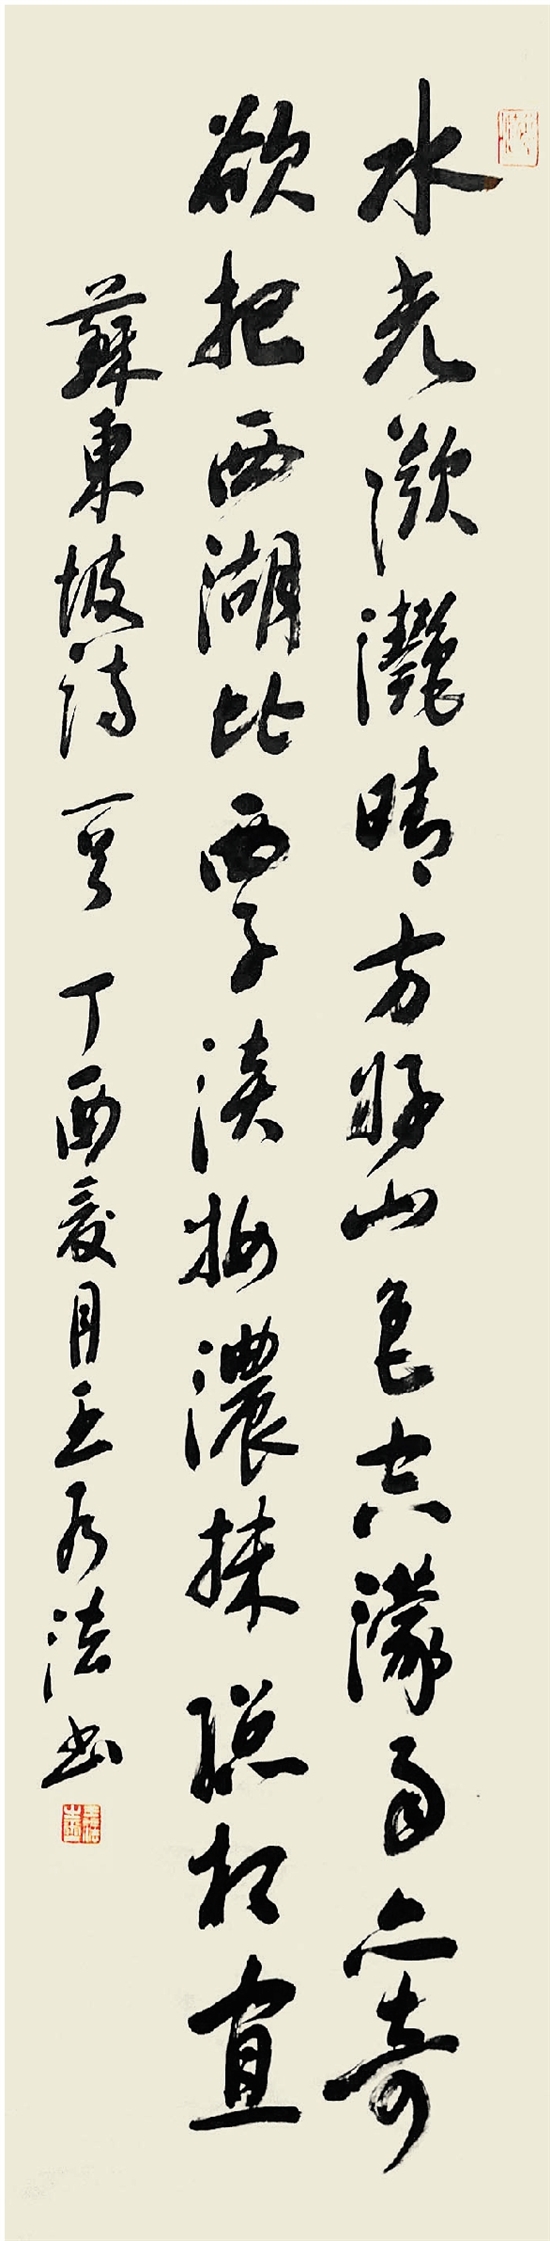 水光瀲灩晴方好山色空濛雨亦奇
欲把西湖比西子淡妝濃抹總相宜
蘇東坡詩一首 丁酉夏月王法書